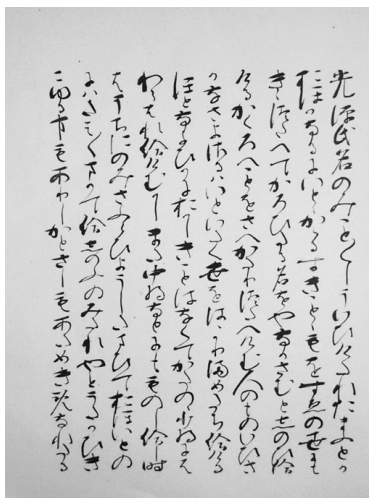 光源氏名のみこと〱しういひけたれたまふとか
おほかなるにいとゝかゝるすきことゝもをすゑの世にも
きゝつたへてかろひたる名をやなかさむとしのひ給
けるかくろへことをさへかたりつたへけむ人のものいひさ
かなさよさるはいといたく世をはゝかりまめたち給ける
ほとなよひかにおかしきことはなくてかたのゝ少将には
わらはれ給けむかしまた中将なとにものし給し時
はうちにのみさふらひようしたまひておほいとの
にはたえ〱まかて給しのふのみたれやとうたかひき
こゆる事もありしかとさしもあためきめなれたる